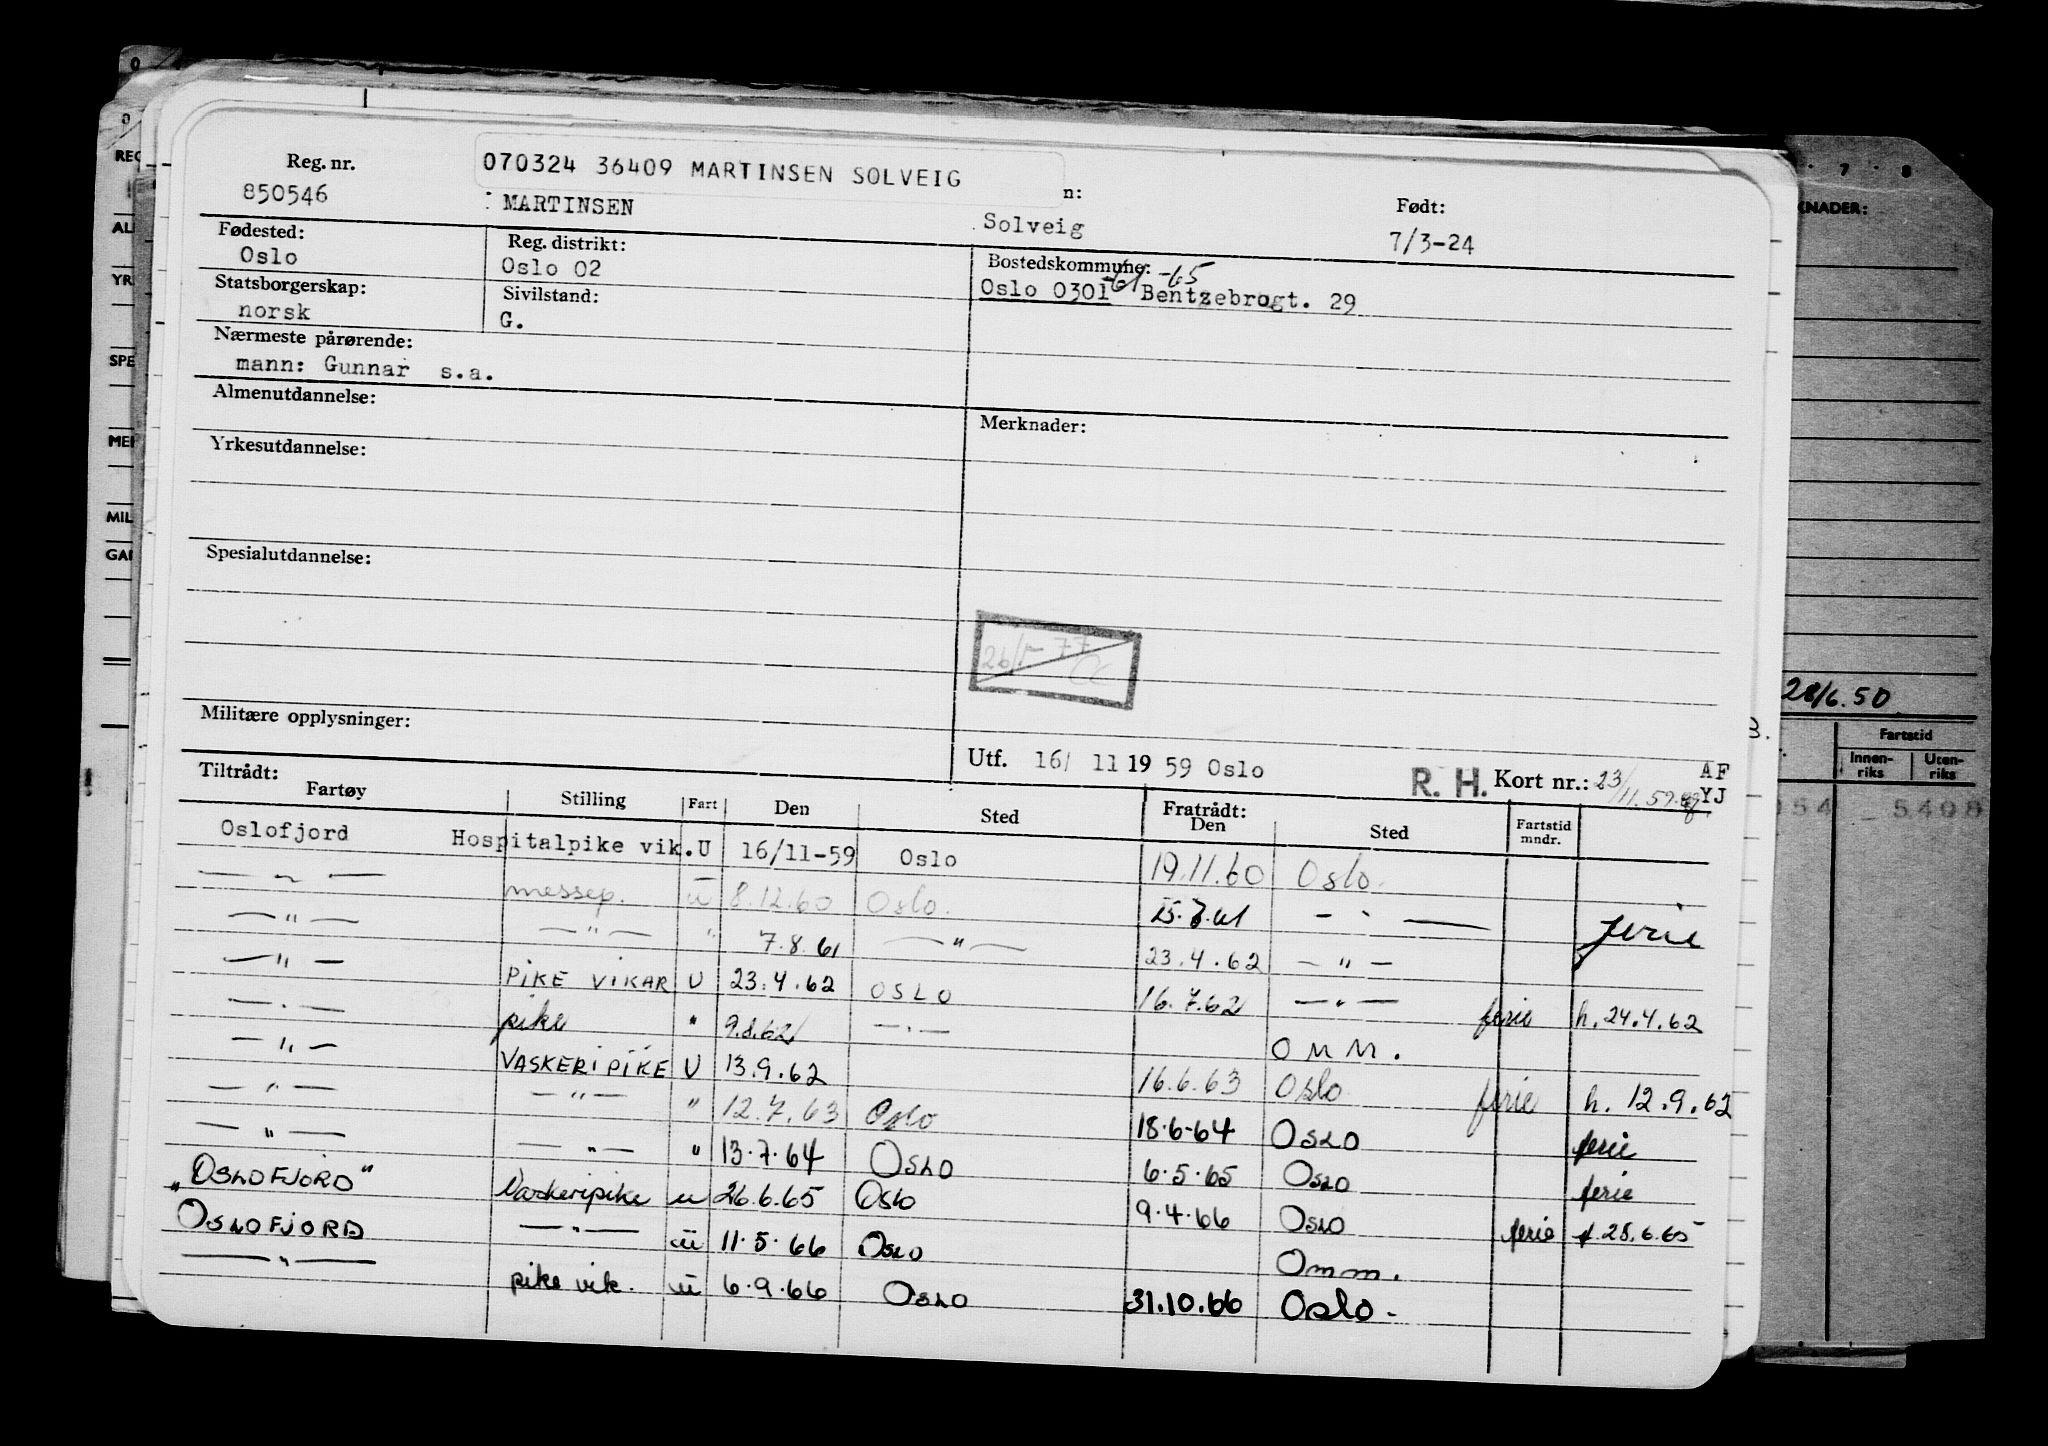 Reg. nr.
070324 36409 MARTINSEN SOLVEIG
n:
850546
: MARTINSEN
Solveig
Født:
7/3-24
Fødested:
Oslo
Reg. distrikt:
Oslo 02
Bostedskommune:
-61 -65
Oslo 0301 Bentzebrogt. 29
Statsborgerskap:
norsk
Sivilstand:
G.
Nærmeste pårørende:
mann: Gunnar s.a.
Almenutdannelse:
Merknader:
Yrkesutdannelse:
Spesialutdannelse:
26/5-77
Militære opplysninger:
Utf. 16/ 11 19 59 Oslo
R. H. Kort nr.: 23/11.59 AF
YJ
Tiltrådt:
Fartøy Stilling Fart Den Sted Fratrådt: Den Sted Fartstid mndr.
Oslofjord Hospitalpike vik. U 16/11-59 Oslo 19.11.60 Oslo.
— " — messep. ū 8.12.60 Oslo. 15.7.61 — " — ferie
— " — — " — " 7.8.61 — " — 23.4.62 — " —
— " — PIKE VIKAR U 23.4.62 OSLO 16.7.62 — " — ferie h. 24.4.62
— " — pike " 9.8.62 — " — OMM.
— " — VASKERIPIKE U 13.9.62 16.6.63 Oslo ferie h. 12.9.62
— " — — " — " 12.7.63 Oslo 18.6-64 OSLO ferie
— " — — " — " 13.7.64 OSLO 6.5.65 OSLO ferie
"OSLOFJORD" Vaskeripike u 26.6.65 Oslo 9.4.66 OSLO ferie f. 28.6.65
OSLOFJORD — " — ū 11.5.66 OSLO Omm.
— " — pike vik. ū 6.9.66 OSLO 31.10.66 Oslo.
O
0
REG
AL
YR
SPE
MER
MIL
GAR
7 8
KNADER:
28/6.50
3.
Fartstid
Innen-riks
Uten-riks
054
5408